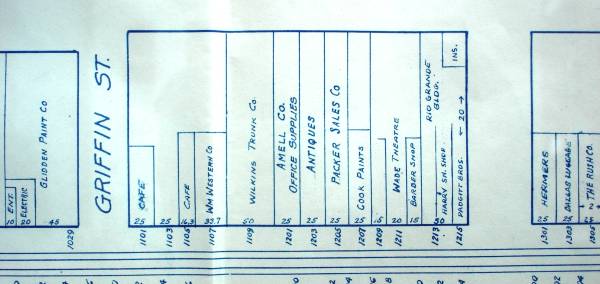 ENT.
10
ELECTRIC
20
GLIDDEN PAINT CO
45
1029
GRIFFIN ST.
CAFE
25
1101
25
1103
CAFE
16.3
1105
WM WESTERN CO.
33.7
1107
WILKINS TRUNK CO.
50
1109
AMELL CO.
OFFICE SUPPLIES
25
1201
ANTIQUES
25
1203
PACKER SALES CO
25
1205
COOK PAINTS
25
1207
15
1209
WADE THEATRE
20
1211
BARBER SHOP
15
RIO GRANDE
BLDG.
1213
HARRY SH. SHOP
50
INS.
PADGITT BROS.
← 20 →
1215
HERMERS
25
1301
DALLAS LUGGAGE
25
1303
THE RUSH CO.
1305